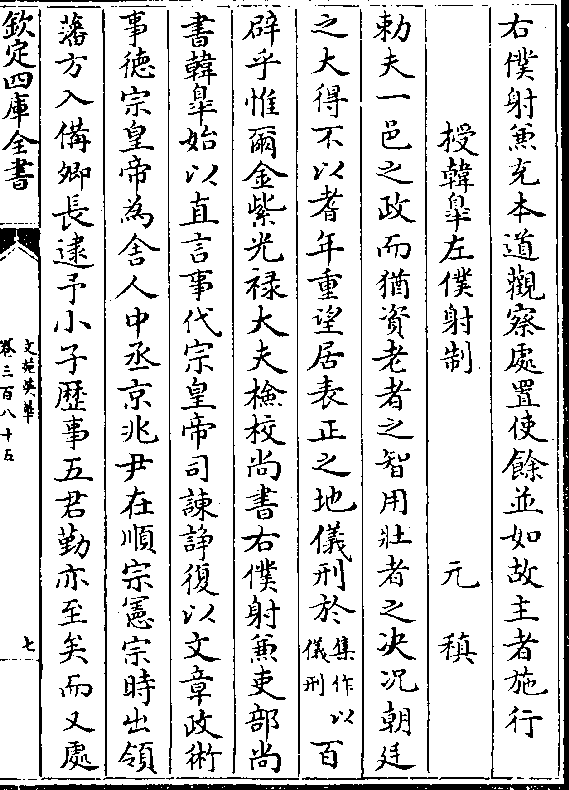 右僕射兼充本道觀察處置使餘並如故主者施行
授韓臯左僕射制 元稹
勅夫一邑之政而猶資老者之智用壯者之决况朝廷
之大得不以耆年重望居表正之地儀刑於集作以儀刑百
辟乎惟爾金紫光祿大夫檢校尚書右僕射兼吏部尚
書韓臯始以直言事代宗皇帝司諫諍復以文章政術
事德宗皇帝為舍人中丞京兆尹在順宗憲宗時出領
藩方入備卿長逮予小子歴事五君勤亦至矣而又處
欽定四庫全書
文苑英華
卷三百八十五
七